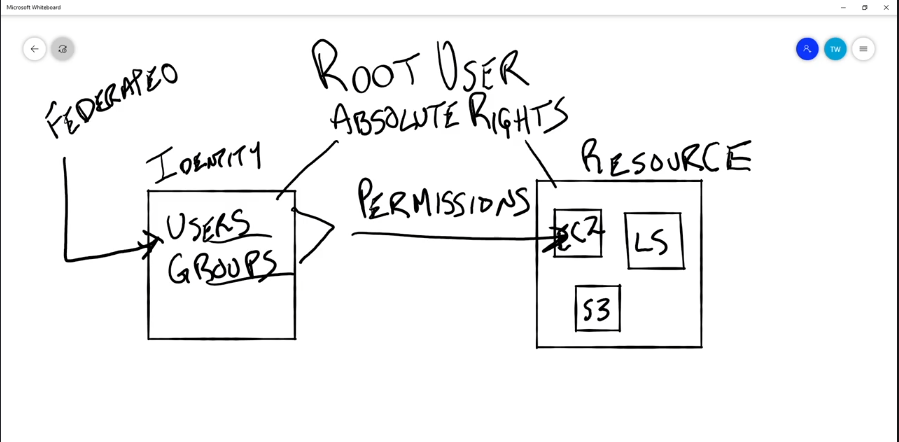 Microsoft Whiteboard
TW
ROOT USER
ABSOLUTE RIGHTS
FEDERATED
IDENTITY
RESOURCE
USERS
GROUPS
PERMISSIONS
EC2
LS
S3